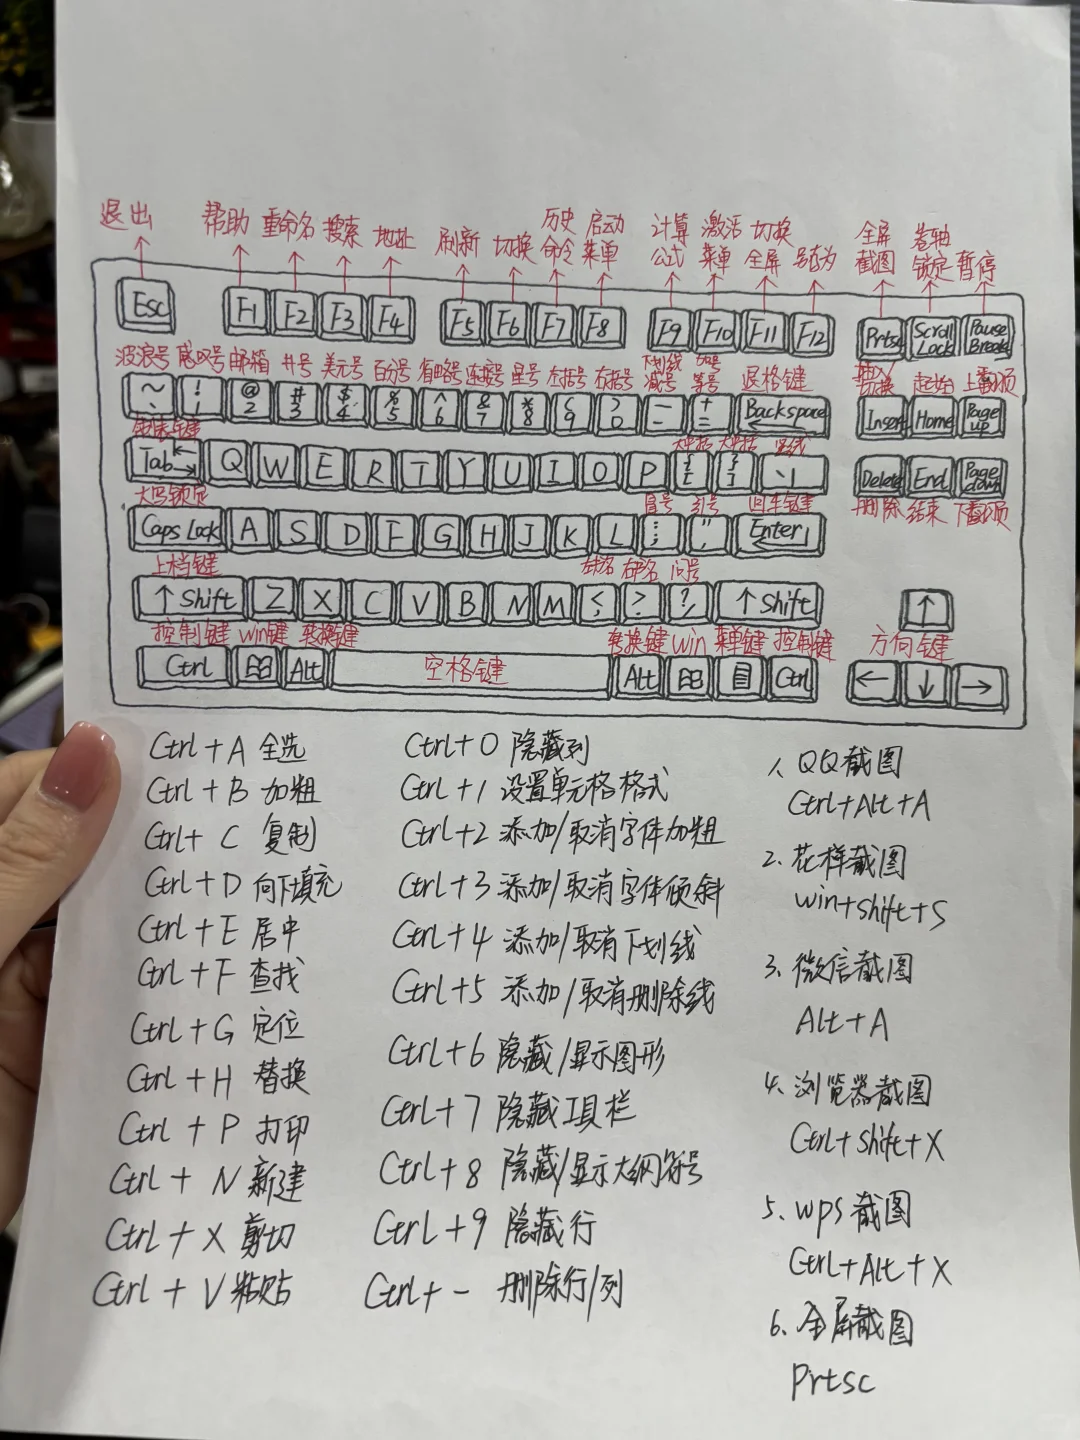 退出 帮助 重命名 搜索 地址 刷新 切换 历史命令 启动菜单 计算公式 激活菜单 切换全屏 另存为 全屏截图 卷轴锁定 暂停
Esc F1 F2 F3 F4 F5 F6 F7 F8 F9 F10 F11 F12 Prtsc Scroll Lock Pause Break
波浪号 感叹号 邮箱 井号 美元号 百分号 省略号 连接号 星号 左括号 右括号 下划线减号 加号等号 退格键 插入切换 起始 上翻页
~ ` ! 1 @ 2 # 3 $ 4 % 5 ^ 6 & 7 * 8 ( 9 ) 0 — - + = Backspace Insert Home Page up
制表键 大中括 大中括 竖线
Tab Q W E R T Y U I O P { [ } ] \ | Delete End Page down
大写锁定 冒号 引号 回车键 删除 结束 下翻页
Caps Lock A S D F G H J K L : ; " ' Enter
上档键 左书名 右书名 问号
↑ Shift Z X C V B N M < , > . ? / ↑ Shift ↑
控制键 win键 转换键 转换键 win 菜单键 控制键 方向键
Ctrl Alt 空格键 Alt Ctrl ← ↓ →
Ctrl + A 全选
Ctrl + B 加粗
Ctrl + C 复制
Ctrl + D 向下填充
Ctrl + E 居中
Ctrl + F 查找
Ctrl + G 定位
Ctrl + H 替换
Ctrl + P 打印
Ctrl + N 新建
Ctrl + X 剪切
Ctrl + V 粘贴
Ctrl + 0 隐藏列
Ctrl + 1 设置单元格格式
Ctrl + 2 添加/取消字体加粗
Ctrl + 3 添加/取消字体倾斜
Ctrl + 4 添加/取消下划线
Ctrl + 5 添加/取消删除线
Ctrl + 6 隐藏/显示图形
Ctrl + 7 隐藏工具栏
Ctrl + 8 隐藏/显示大纲符号
Ctrl + 9 隐藏行
Ctrl + - 删除行/列
1、QQ截图
Ctrl+Alt+A
2、花样截图
win+shift+S
3、微信截图
Alt+A
4、浏览器截图
Ctrl+shift+X
5、wps截图
Ctrl+Alt+X
6、全屏截图
Prtsc